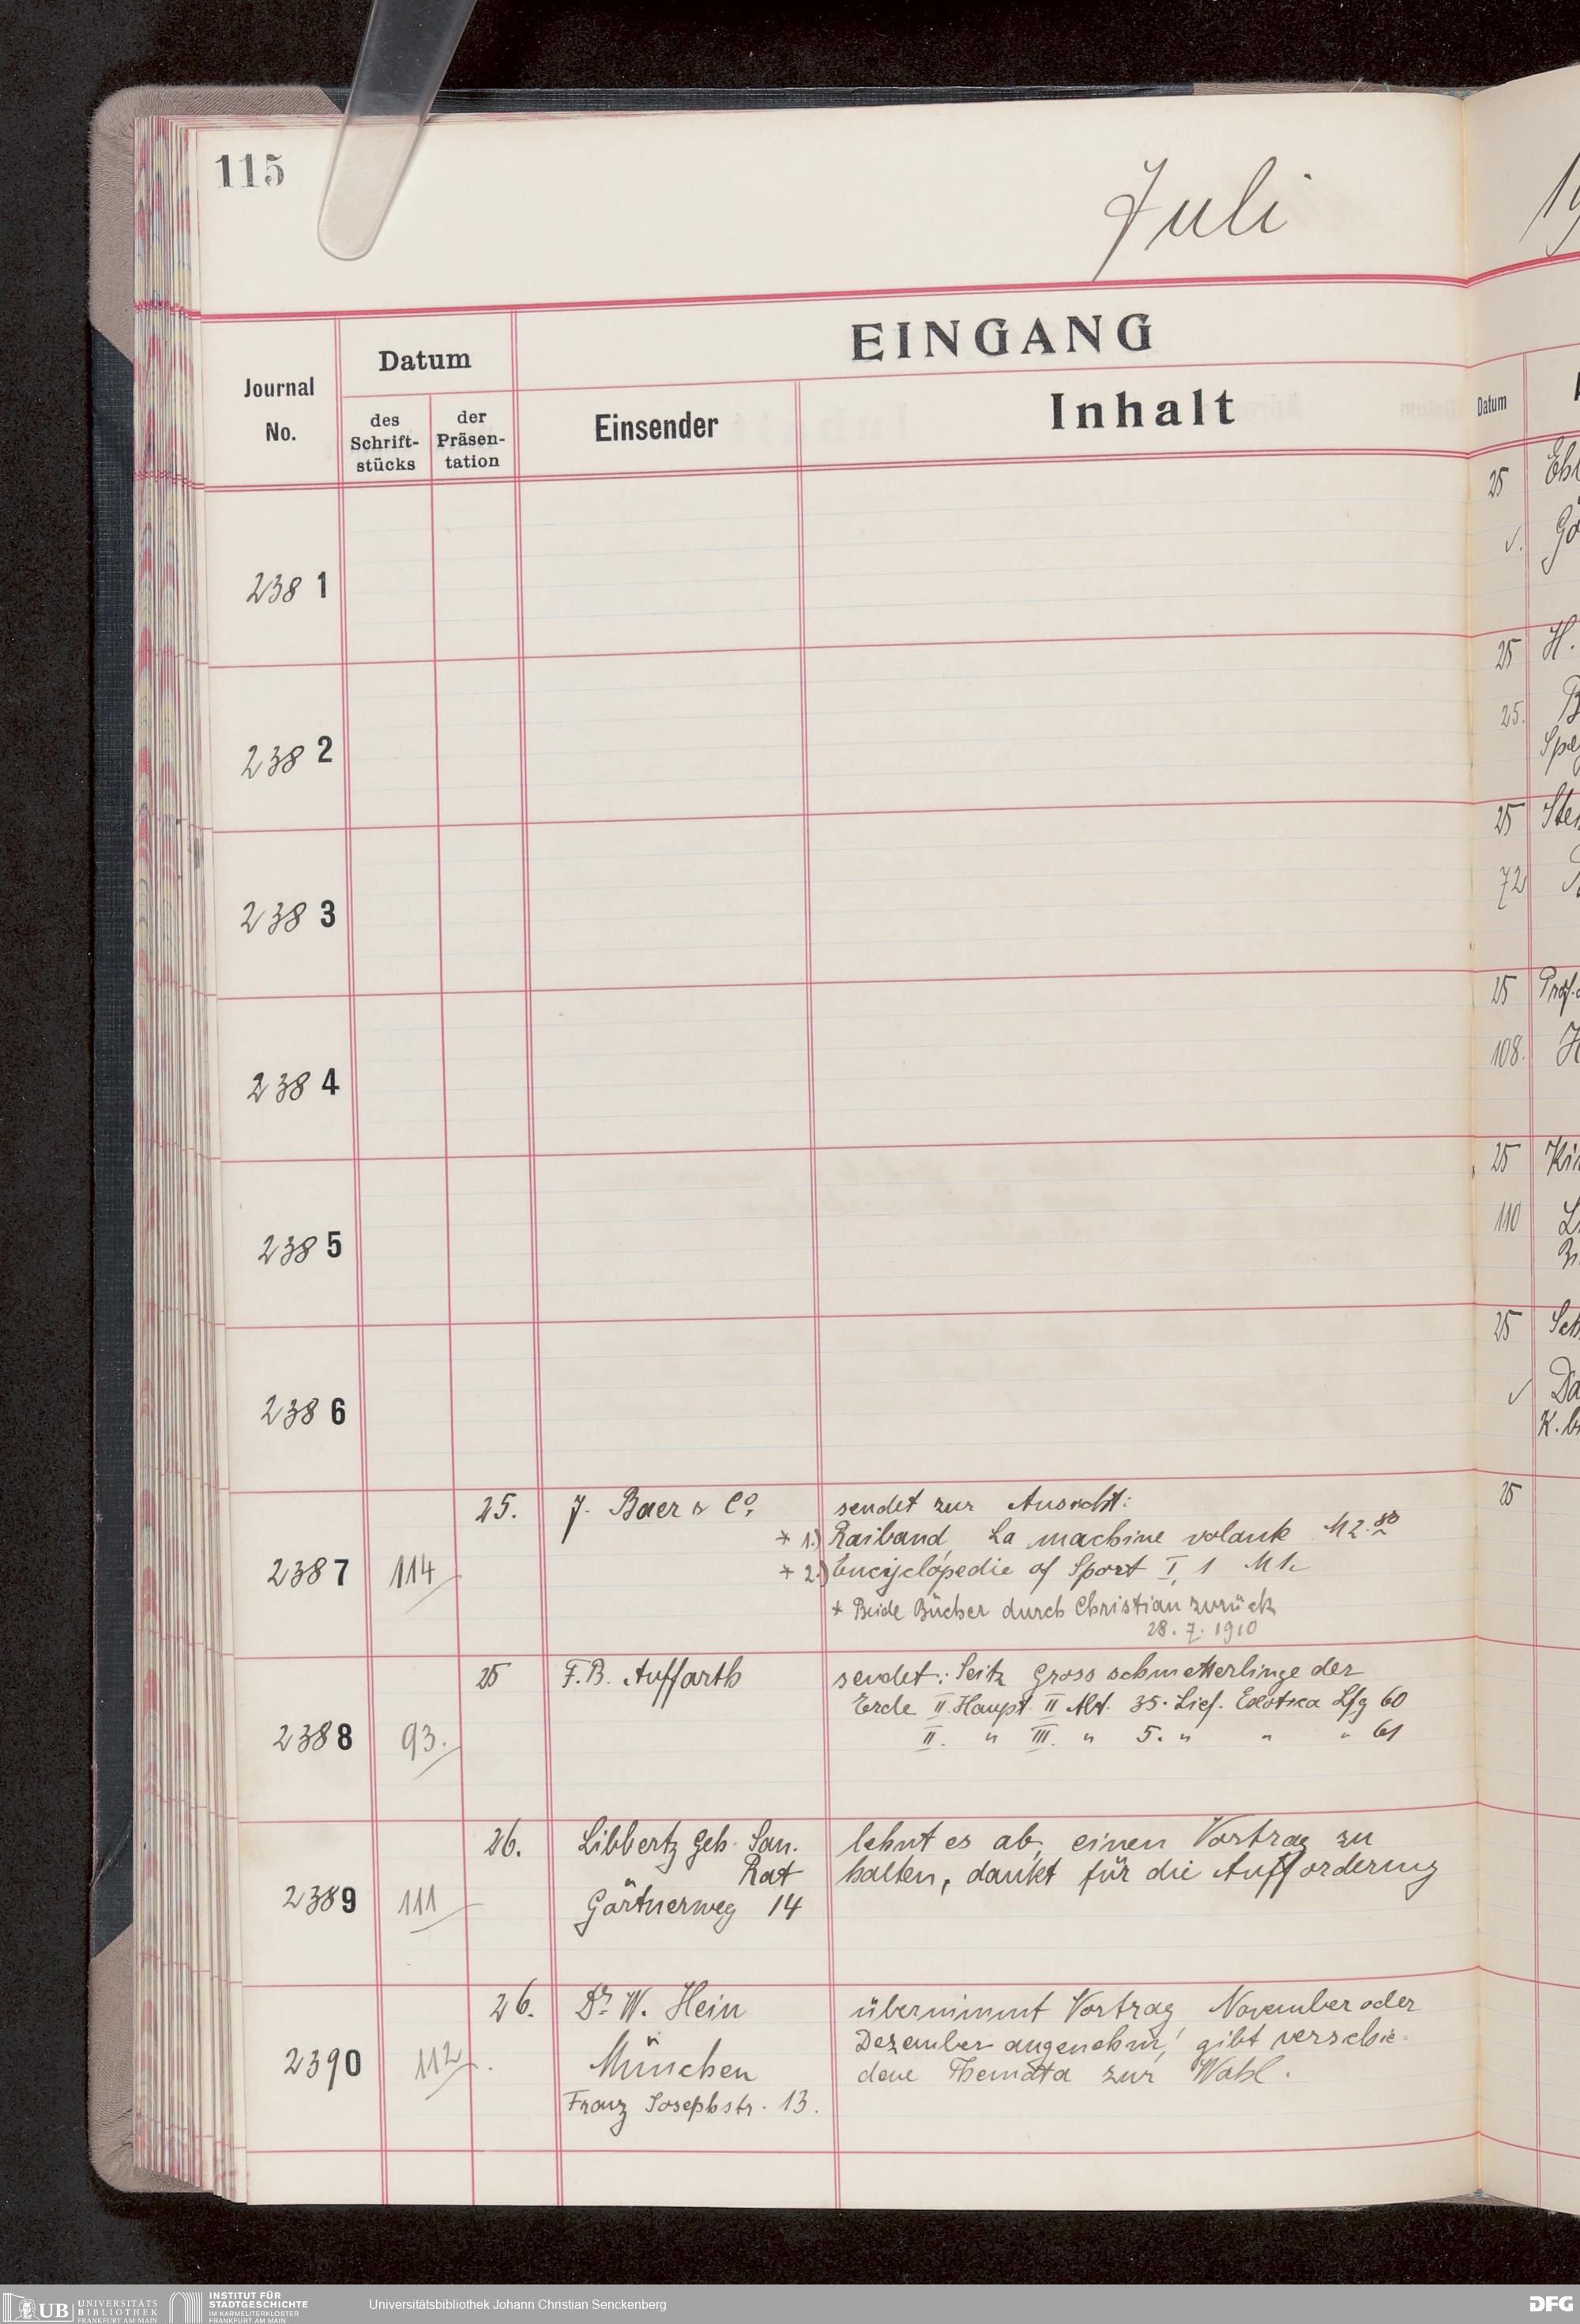 115
Juli
EINGANG
Journal No.
Datum
des Schrift-stücks
der Präsen-tation
Einsender
Inhalt
Datum
2381
25
2382
25
25.
2383
25
72
2384
25
108.
2385
25
110
2386
25
2387
114
25.
J. Baer & Co.
sendet zur Ansicht:
* 1.) Raiband, La machine volante M 2.80
* 2.) Encyclópedie of Sport I, 1 M 1.-
* Beide Bücher durch Christian zurück
28.7.1910
25
2388
93.
25
F.B. Auffarth
sendet: Seitz Gross schmetterlinge der
Erde II. Haupt. II Abt. 35. Lief. Exotica Lfg 60
II. " III. " 5. " " " 61
2389
111
26.
Libbertz Geh. San.
Rat
Gärtnerweg 14
lehnt es ab, einen Vortrag zu
halten, dankt für die Aufforderung
2390
112
26.
Dr. W. Hein
München
Franz Josephstr. 13.
übernimmt Vortrag, November oder
Dezember angenehm, gibt verschie=
dene Themata zur Wahl.
UB UNIVERSITÄTS BIBLIOTHEK FRANKFURT AM MAIN
INSTITUT FÜR STADTGESCHICHTE IM KARMELITERKLOSTER FRANKFURT AM MAIN
Universitätsbibliothek Johann Christian Senckenberg
DFG